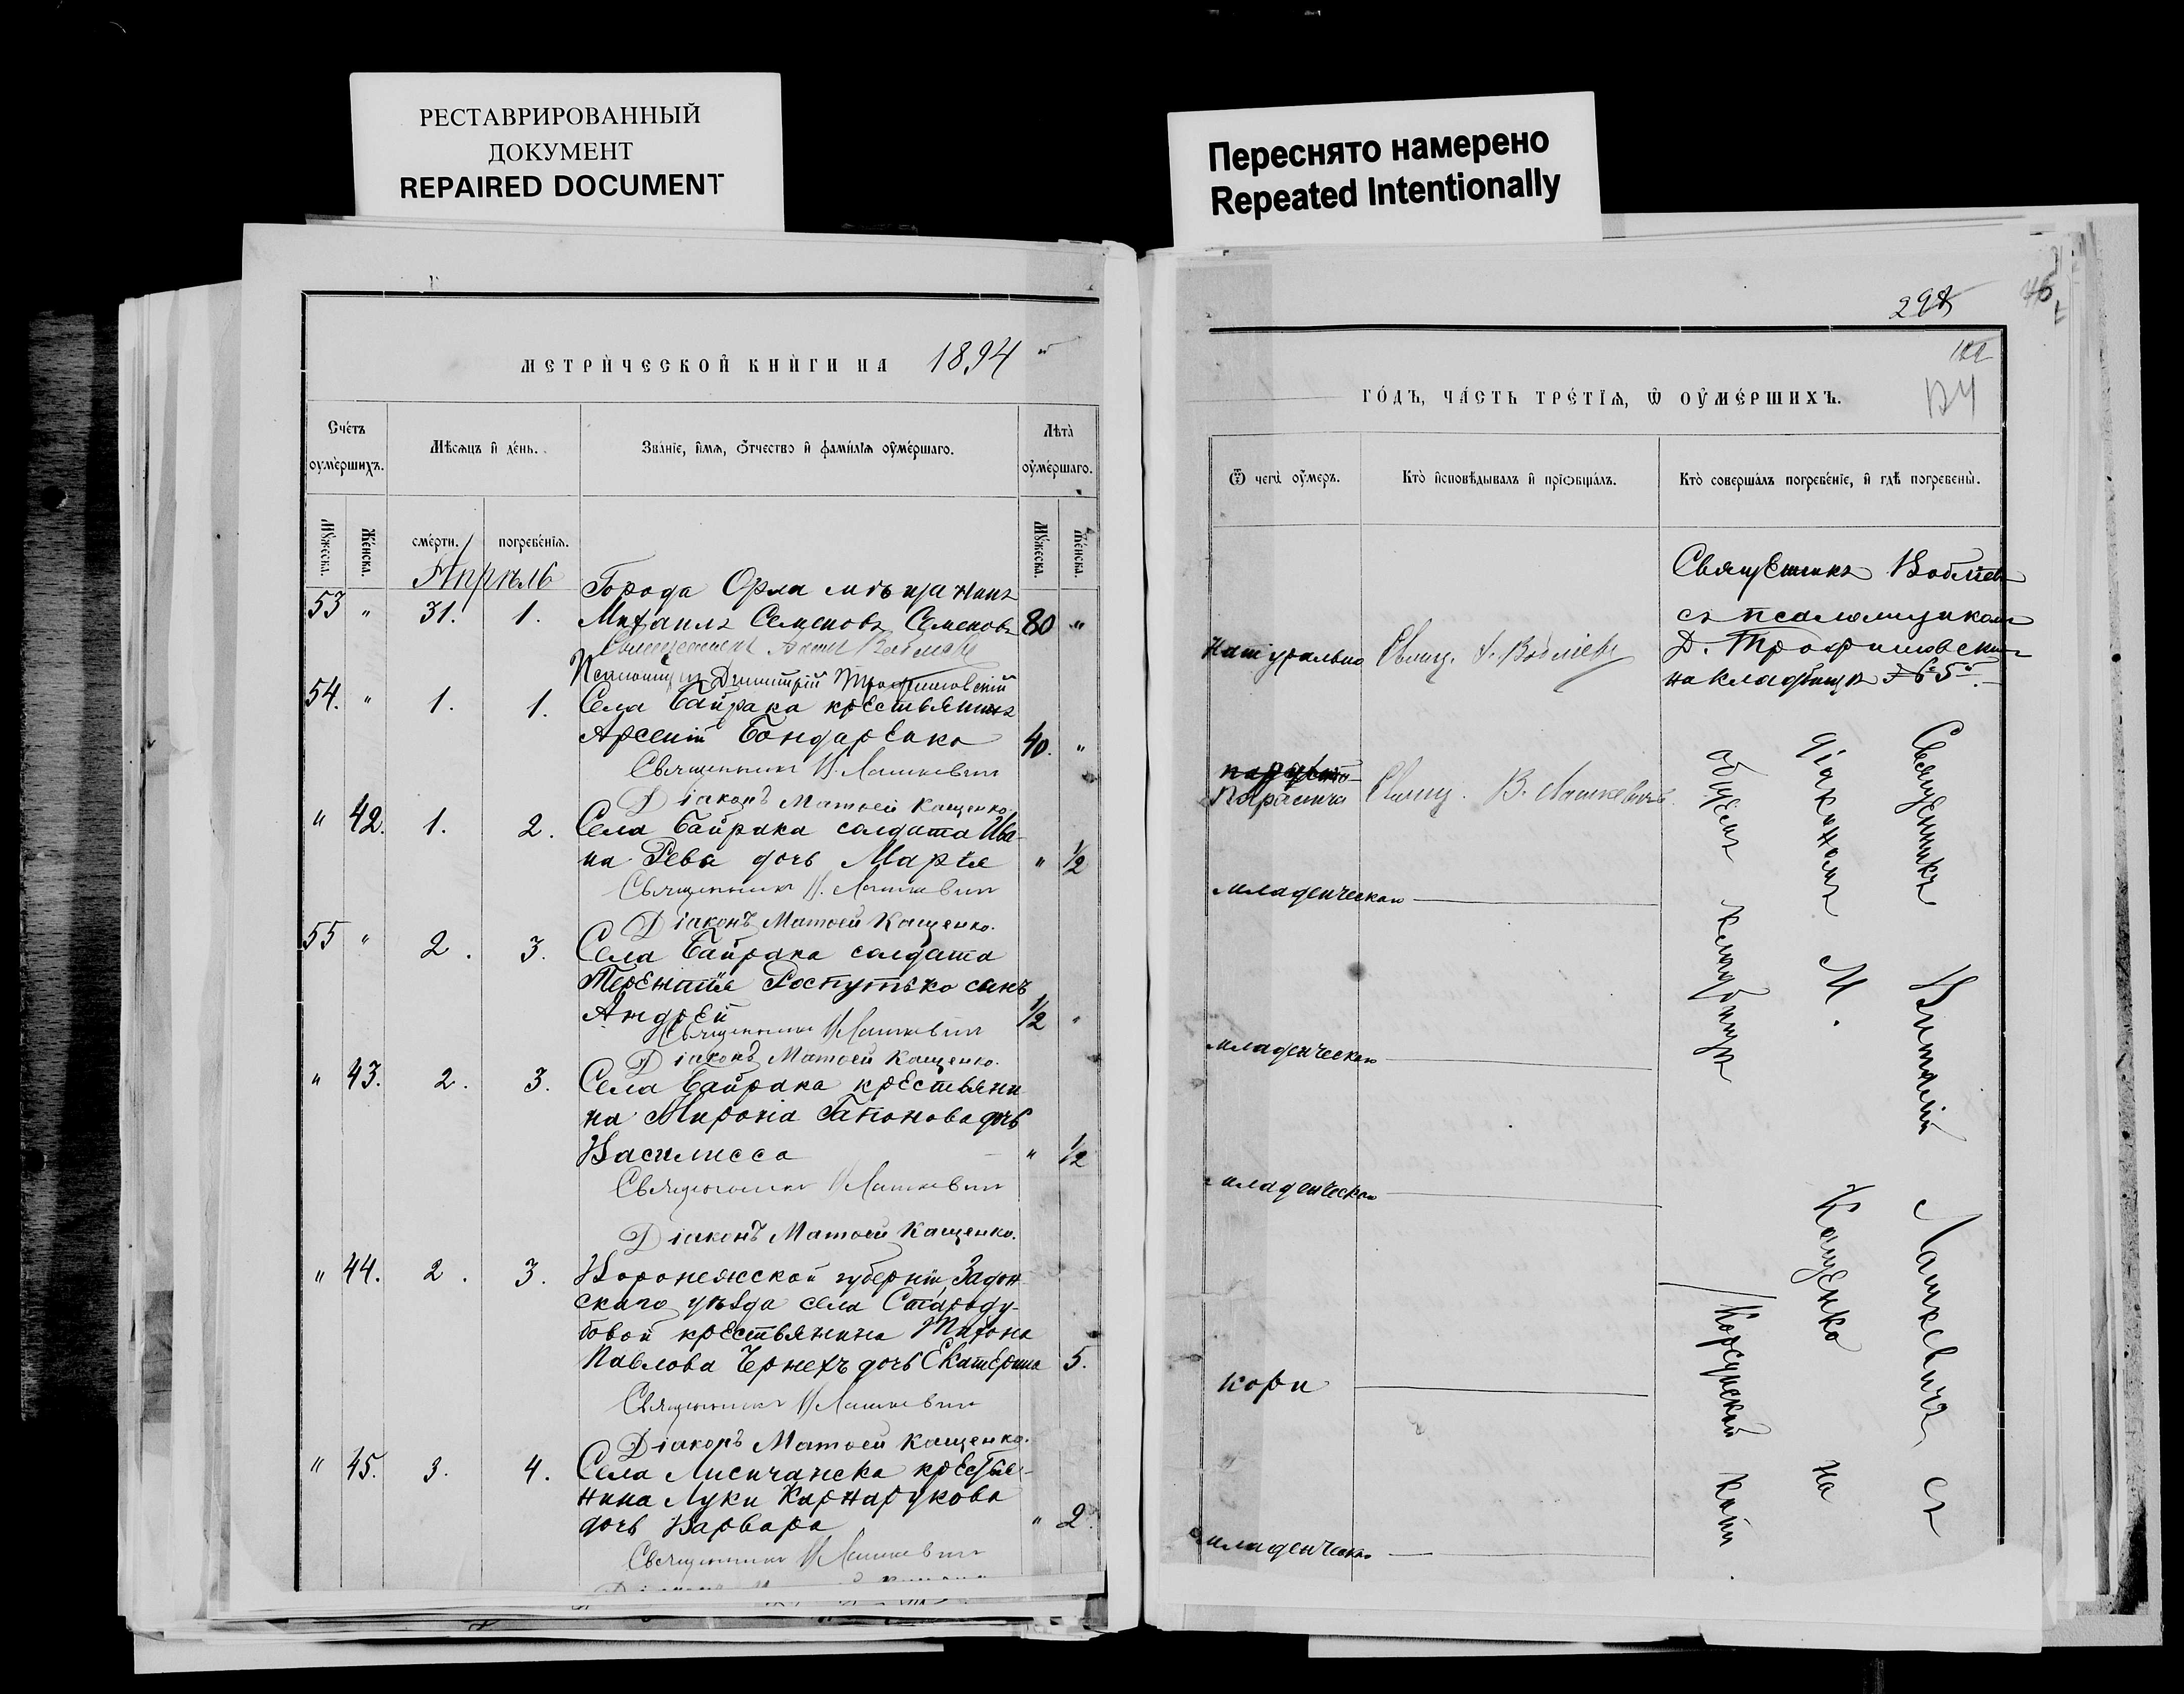 РЕСТАВРИРОВАННЫЙ
ДОКУМЕНТ
REPAIRED DOCUMENT
Переснято намерено
Repeated Intentionally
МЕТРИЧЕСКОЙ КНИГИ НА 1894
Счетъ оумершихъ.
Мѣсяцъ и день.
Званіе, имя, отчество и фамилія оумершаго.
Лѣта оумершаго.
Мужеска.
Женска.
смерти.
погребенія.
Мужеска.
Женска.
Апрѣль
53 " 31. 1. Города Орла мѣщанинъ
Михаилъ Семеновъ Семеновъ 80 "
Псаломщикъ Димитрій Трофимовскій
54. " 1. 1. Села Байрака крестьянинъ
Арсеній Бондаренко 40. "
Священникъ В. Лашкевичъ
Діаконъ Матѳей Кащенко.
" 42. 1. 2. Села Байрака солдата Ива-
на Рева дочь Марія " 1/2
Священникъ В. Лашкевичъ
Діаконъ Матѳей Кащенко.
55 " 2. 3. Села Байрака солдата
Терентія Роспутько сынъ
Андрей 1/2 "
Священникъ В Лашкевичъ
Діаконъ Матѳей Кащенко.
" 43. 2. 3. Села Байрака крестьяни-
на Миронія Гапонова дочь
Василисса " 1/2
Священникъ В Лашкевичъ
Діаконъ Матѳей Кащенко.
" 44. 2. 3. Воронежской губерніи Задон-
скаго уѣзда села Староду
бовой крестьянина
Павлова дочь Екатерина 5.
Священникъ В Лашкевичъ
Діаконъ Матѳей Кащенко.
" 45. 3. 4. Села Лисичанска крестья-
нина Луки Карнарукова
дочь Варвара " 2.
Священникъ В Лашкевичъ
298
124
ГОДЪ, ЧАСТЬ ТРЕТІЯ, Ѿ ОУМЕРШИХЪ.
Ѿ чегѡ оумеръ.
Кто исповѣдывалъ и пріобщалъ.
Кто совершалъ погребеніе, и гдѣ погребены.
Священникъ
съ псаломщикомъ
Д. Трофимовскимъ
на кладбищѣ № 5
натурально Свящ.
паралича Свящ. В. Лашкевичъ.
младенческой
младенческой
младенческой
кори
младенческой
Священникъ Виталій Лашкевичъ съ
діакономъ М. Кащенко на
общемъ кладбищѣ
Корсунской копи